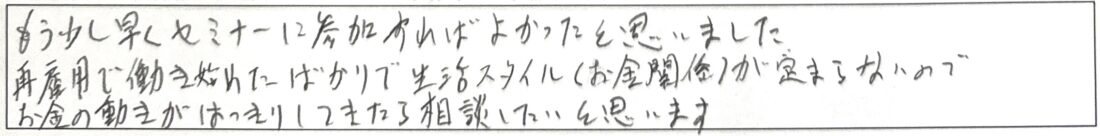 もう少し早くセミナーに参加すればよかったと思いました
再雇用で働き始めたばかりで生活スタイル(お金関係)が定まらないので
お金の動きがはっきりしてきたら相談したいと思います